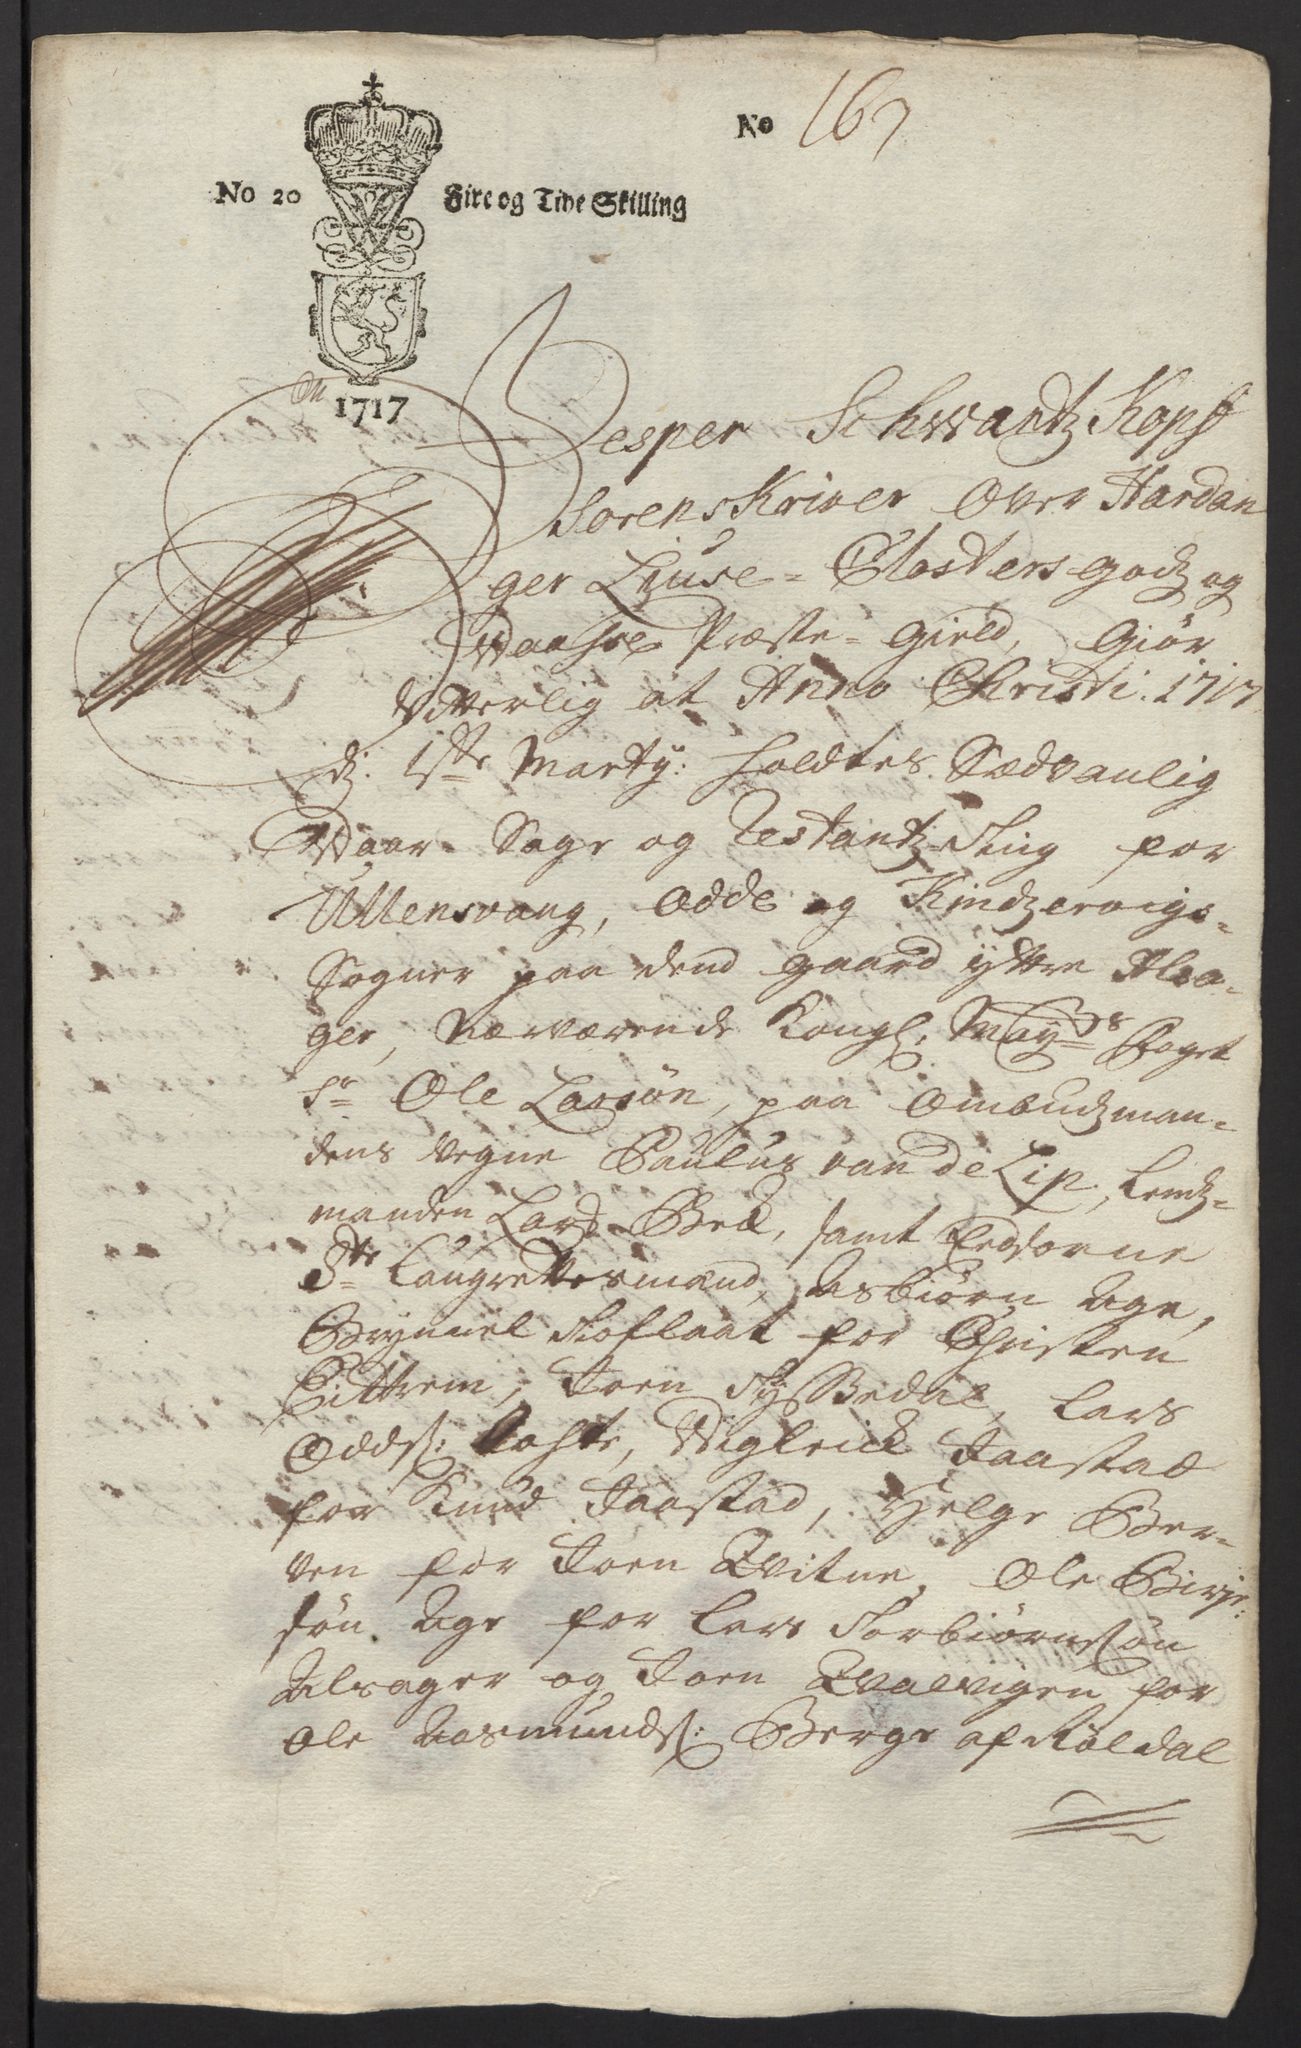 No 167
No 20 Fire og Tive Skilling
1717
Jesper SchwantzKopf
SorensKriver Over Hardan
ger Liuse=Closters godz og
Waasse Præste=gield, giør
Witterlig at Anno Christi. 1717
d. 1ste Marty: holdtes Sædvanlig
Waar=Sage og Restantz=Ting for
Ullensvang, Odde og Kindzervigs=
Sogner paa dend gaard yttre Alsa=
ger, Nærværende Kongl. Mayts Foget
Sr Ole Larsøn, paa Ombudzman=
dens vegne Paulus van de Lip, Lendz=
manden Lars Bek, samt Eedsorne
8te Laugrettesmænd, Asbiørn Age,
Brynnel Tioflaat for Christen
Pittrem, Joen Tyssedal, Lars
Odds: Tochte, Wiglrick Jaastad
for Knud Jaastad, Helge Ber=
ven for Joen Qvitne, Ole Birje=
søn Age for Lars Torbiørnssøn
Alsager og Joen Qvalvigen for
Ole Aasmunds: Berge af Røldal